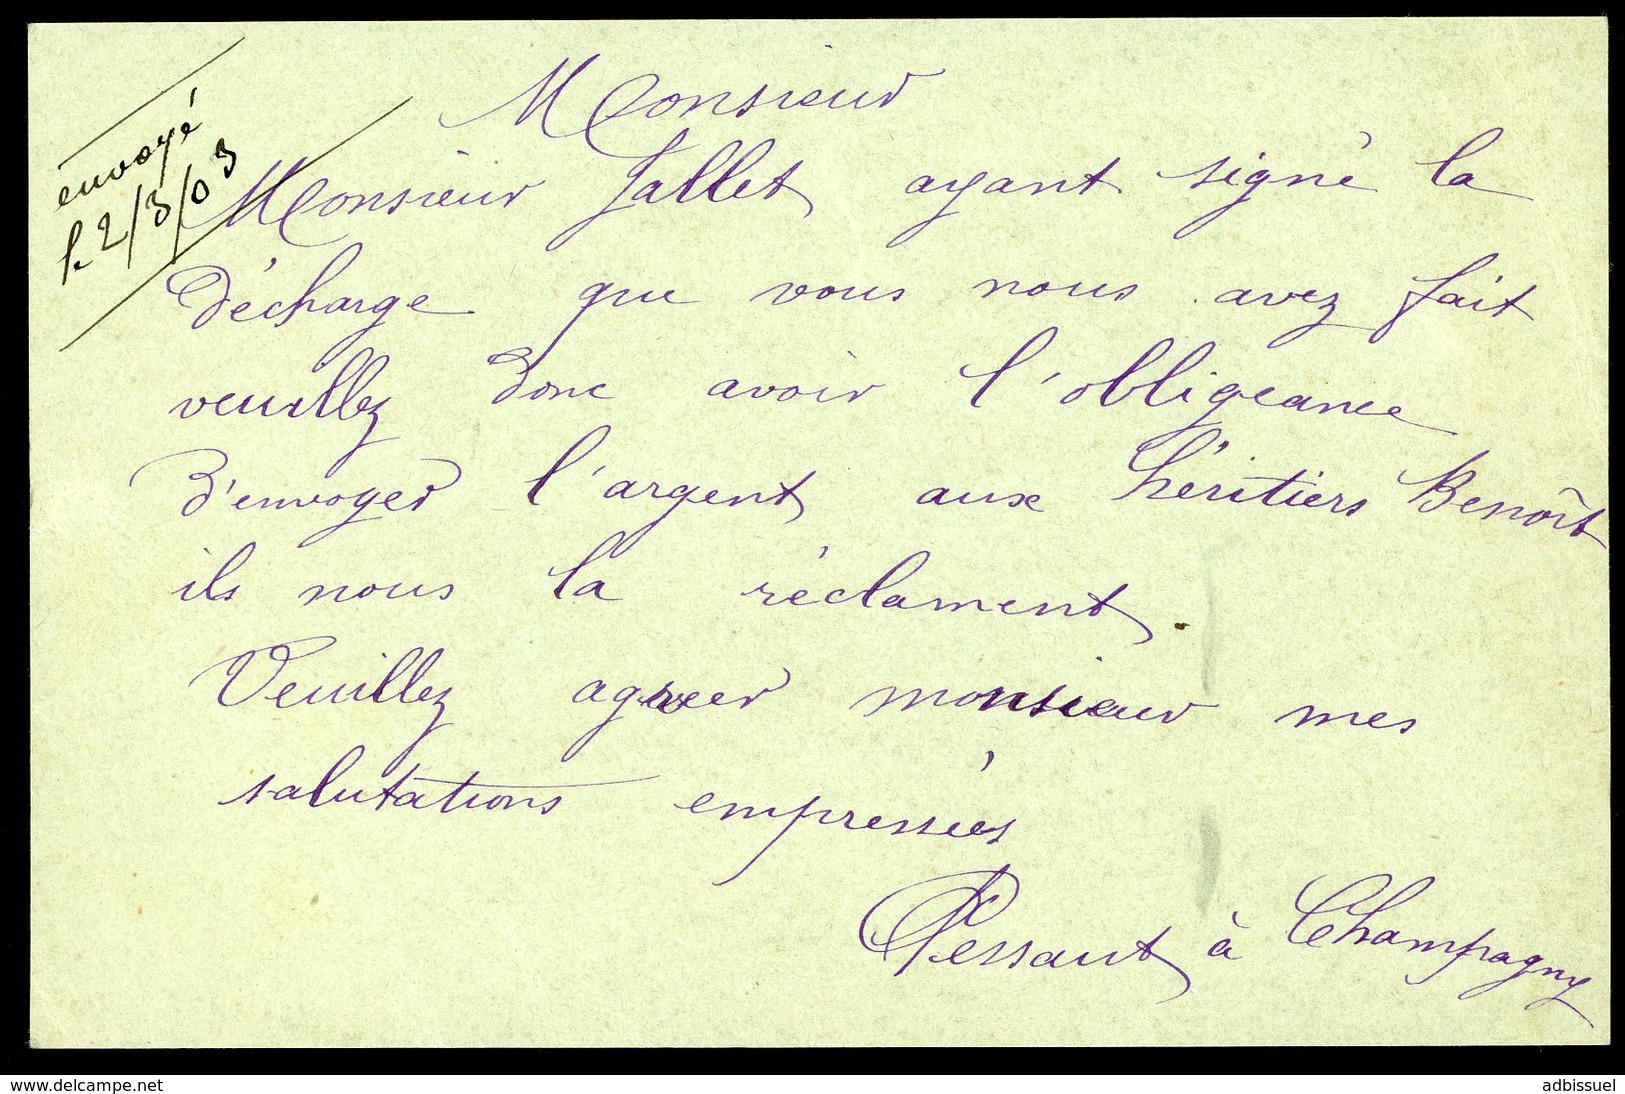 envoyé
l. 2/3/03
Monsieur
Monsieur Jallet ayant signé la
Décharge que vous nous avez fait
veuillez donc avoir l'obligeance
d'envoyer l'argent aux héritiers Benoît
ils nous la réclament.
Veuillez agreer monsieur mes
salutations empressées
Pessaut à Champagny
delcampe.net
adbissuel